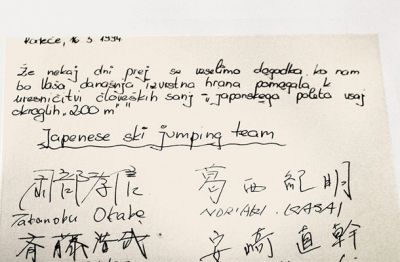 Rateče, 16 3. 1994
Že nekaj dni prej se veselimo dogodka, ko nam
bo Vaša, današnja izvrstna hrana pomagala k
uresničitvi človeških sanj - "japonskega poleta vsaj
okroglih 200 m"
Japenese ski jumping team
岡部孝信 葛西紀明
Takanobu Okabe NORIAKI . KASAI
斉藤浩哉 安崎直幹